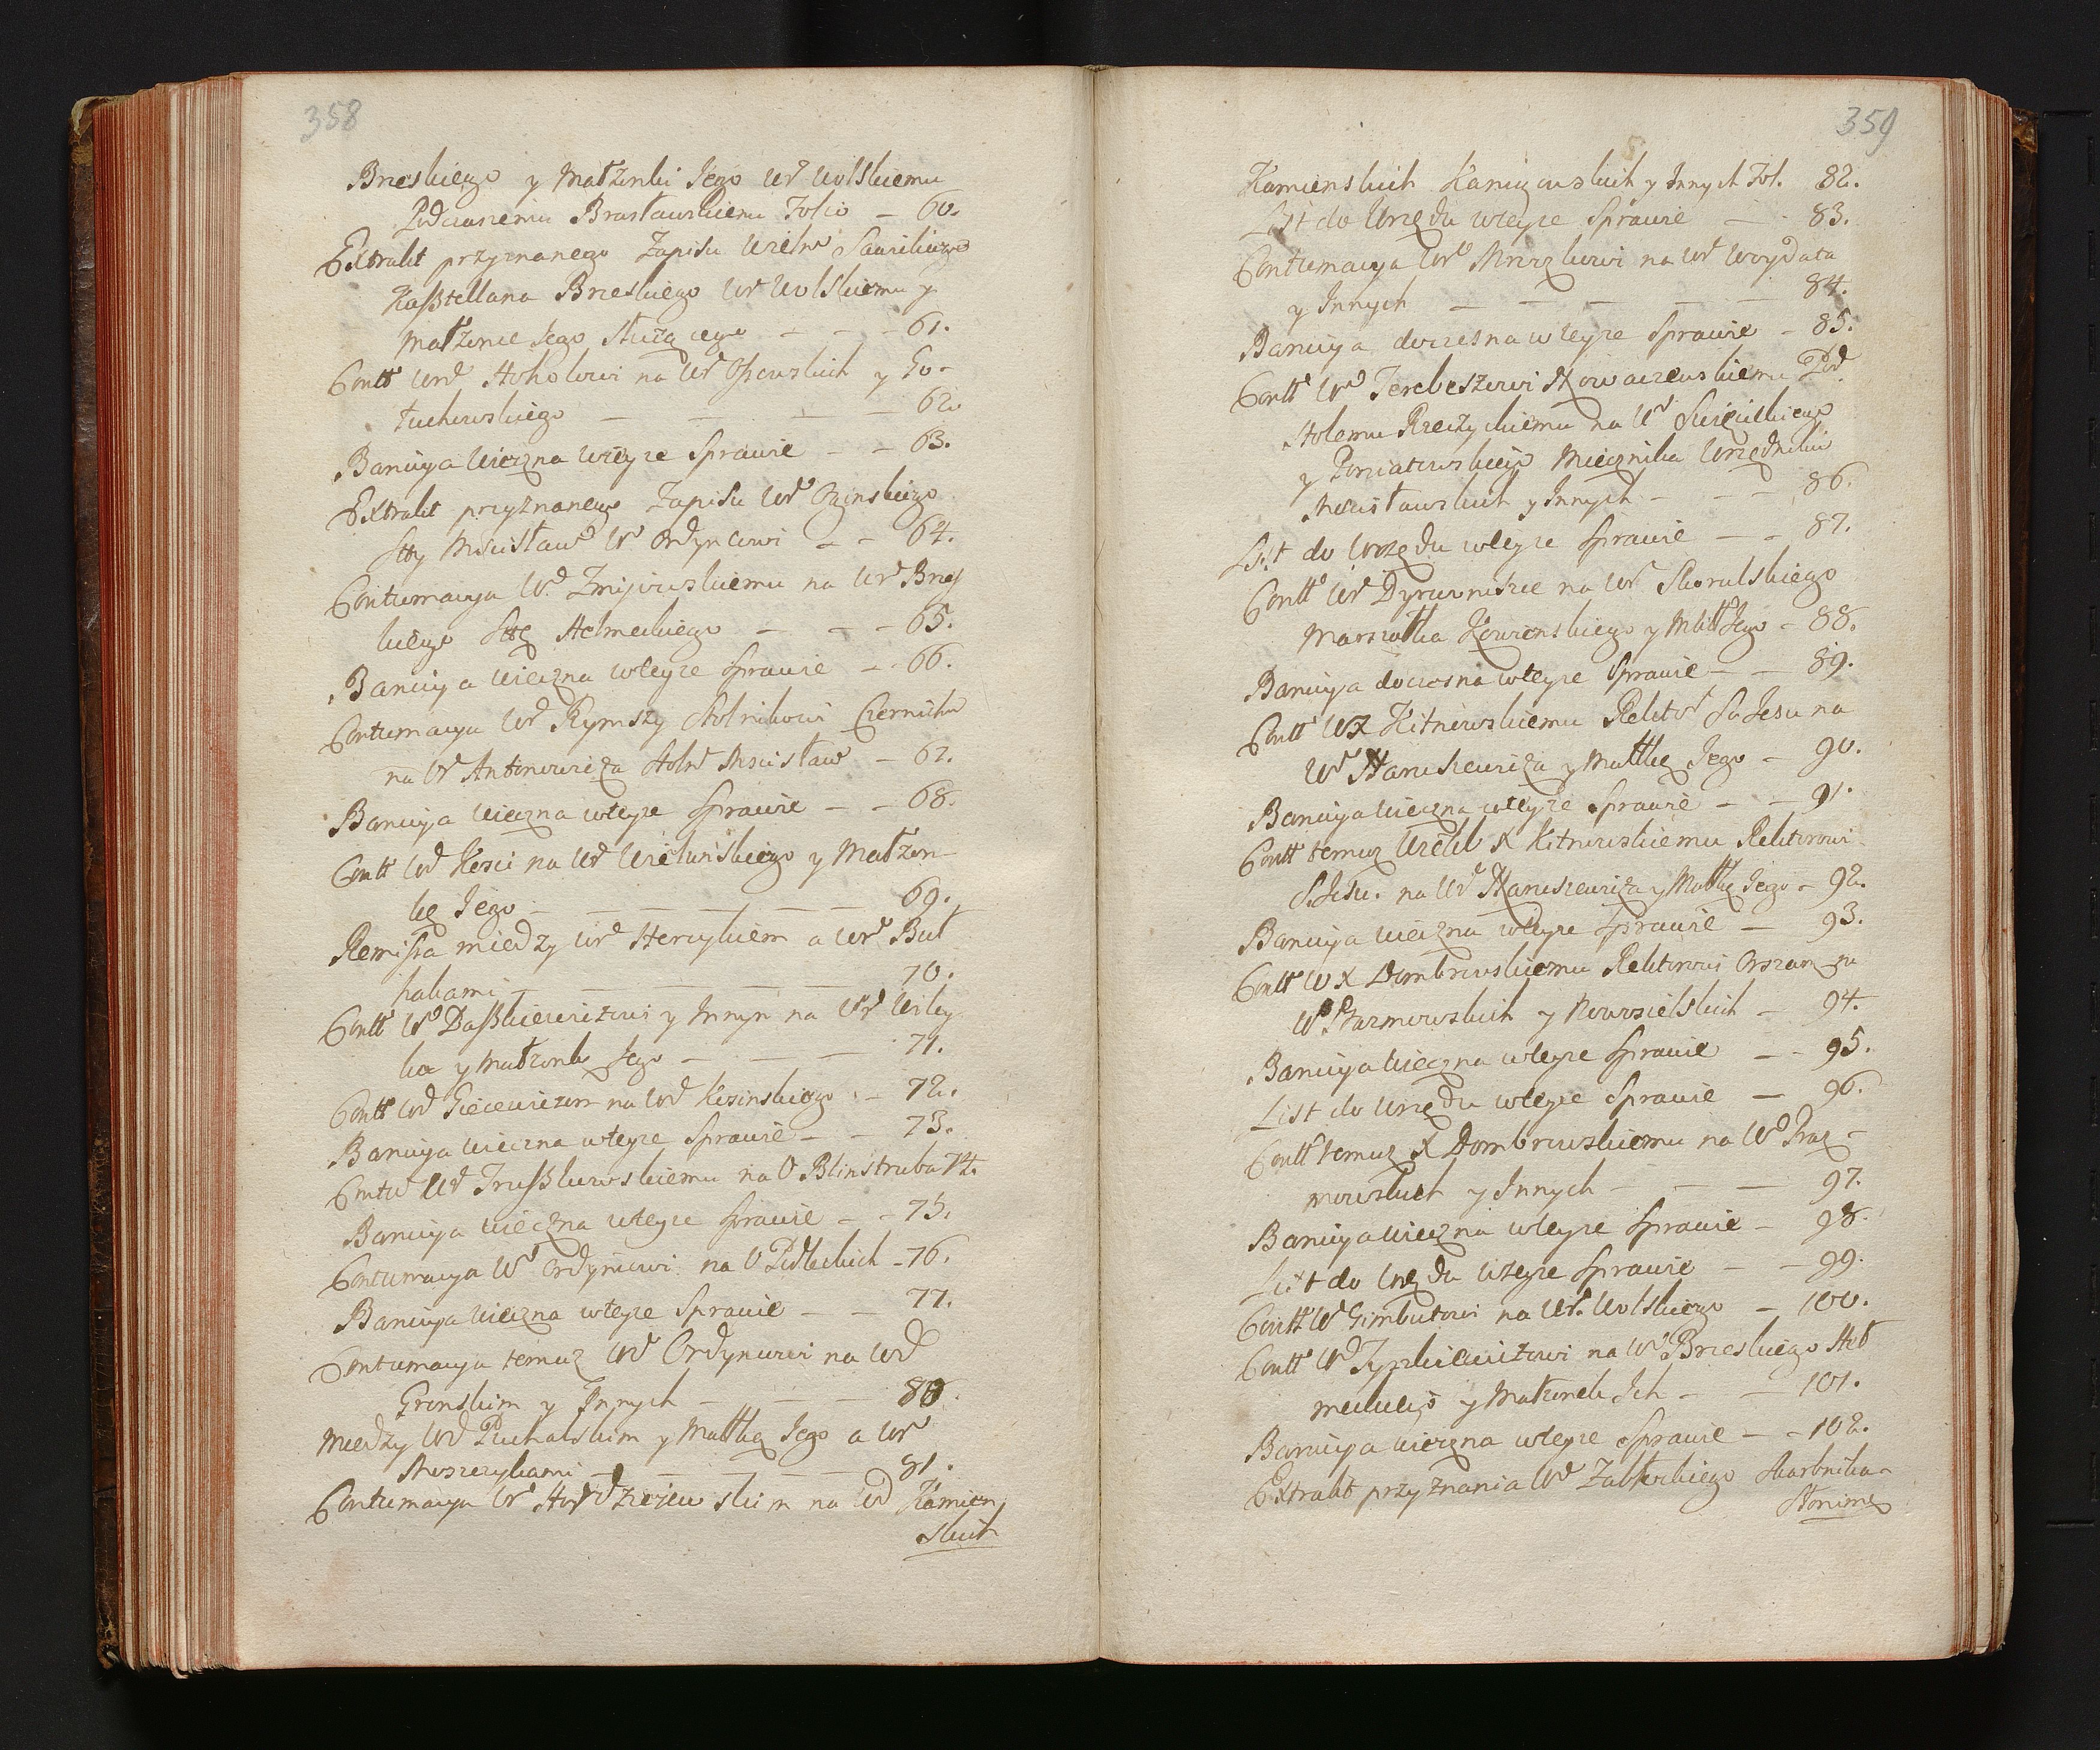 358
Brzeskiego y Małzonki Jego Ur Wolskiemu
Podczaszemu Brasławskiemu Folio – 60.
Extrakt przyznanego Zapisu
Kasztellana Brzeskiego Ur Wolskiemu y
Małzonce Jego służącego – – – 61.
Contt Urd Hołołowi na Ur y Go-
łuchowskiego – – – – 62.
Banicya Wieczna wteyze Sprawie – – 63.
Extrakt przyznanego Zapisu Wd Oginskiego
Stty Mscisław W. Ordyncowi – – 64.
Contumacya Wd Zmijowskiemu na Wd Brzes
kiego Sttę Helmeckiego – – – 65.
Banicya wieczna wteyze Sprawie – – 66.
Contumacya Wd Rymszy Stolnikowi Czernichu
na Wd Antonowicza Stoln Mscisław – 67.
Banicya wieczna wteyze Sprawie – – 68.
Contt Wd Kosci na Wd y Małzon-
kę Jego – – – – – 69.
Remissa miedzy Wd Hercykiem a Wr But
hakami – – – – – 70.
Contt Wd Daszkiewiczowi y Innym na Wd
ka y Małzonkę Jego – – – 71.
Contt Wd Giecewiczom na Wd Kosinskiego – 72.
Banicya wieczna wteyze Sprawie – – 73.
Contu Wd Truszkowskiemu na U Blinstruba 74.
Banicya wieczna wteyze Sprawie – – 75.
Contumacya Wd Ordyncowi na U Podleckich – 76.
Banicya wieczna wteyze Sprawie – – 77.
Contumacya temuz Wd Ordyncowi na Wd
Gronskim y Innych – – – 80.
Miedzy Wd Puchalskim y Małłką Jego a Wr
Moszczykami – – – – 81.
Contumacya Wd na Wd Kamien
skich
359
Kamienskich Kanizowskich y Innych Fol. 82.
List do Urzędu wteyze Sprawie – – 83.
Contumacya Wd Mrozkowi na Wd Woydata
y Innych – – – – – 84.
Banicya doczesna wteyze Sprawie – 85.
Contt Wd Terebeszowi Nowaczewskiemu Pod
stolemu Rzeczyckiemu na Wd
y Poniatowskiego Miecznika Urzędnikow
Mscisławskich y Innych – – – 86.
List do Urzędu wteyze Sprawie – – 87.
Contt Wd Dyrwoniszce na Wd Skorulskiego
Marszałka Kowienskiego y Małł Jego – 88.
Banicya doczesna wteyze Sprawie – – 89.
Contt WX Kitnowskiemu Rektor So Jesu na
Wd Haruszewicza y Małłkę Jego – 90.
Banicya wieczna wteyze Sprawie – – 91.
Contt temuz Wielb X Kitnowskiemu Rektorowi
S. Jesu. na Wd Haruszewicza y Małłkę Jego – 92.
Banicya wieczna wteyze Sprawie – 93.
Contt WX Dombrowskiemu Rektorowi Orszan na
Wd y Nowosielskich – 94.
Banicya wieczna wteyze Sprawie – – 95.
List do Urzędu wteyze Sprawie – 96.
Contt temuz X Dombrowskiemu na Wd
mowskich y Innych – – – 97.
Banicya wieczna wteyze Sprawie – 98.
List do Urzędu wteyze Sprawie – – 99.
Contt Wd Gimbutowi na Wd Wolskiego – 100.
Contt Wd Tyszkiewiczowi na Wd Brzeskiego Hel
meckiego y Małzonkę Ich – – 101.
Banicya wieczna wteyze Sprawie – – 102.
Extrakt przyznania Wd Zabłockiego Skarbnika
Słonime